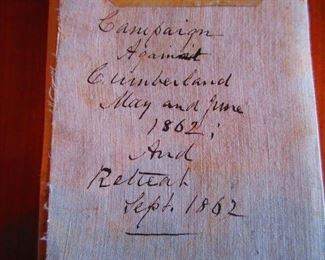 Campaign
Against
Cumberland
May and June
1862;
And
Retreat
Sept. 1862